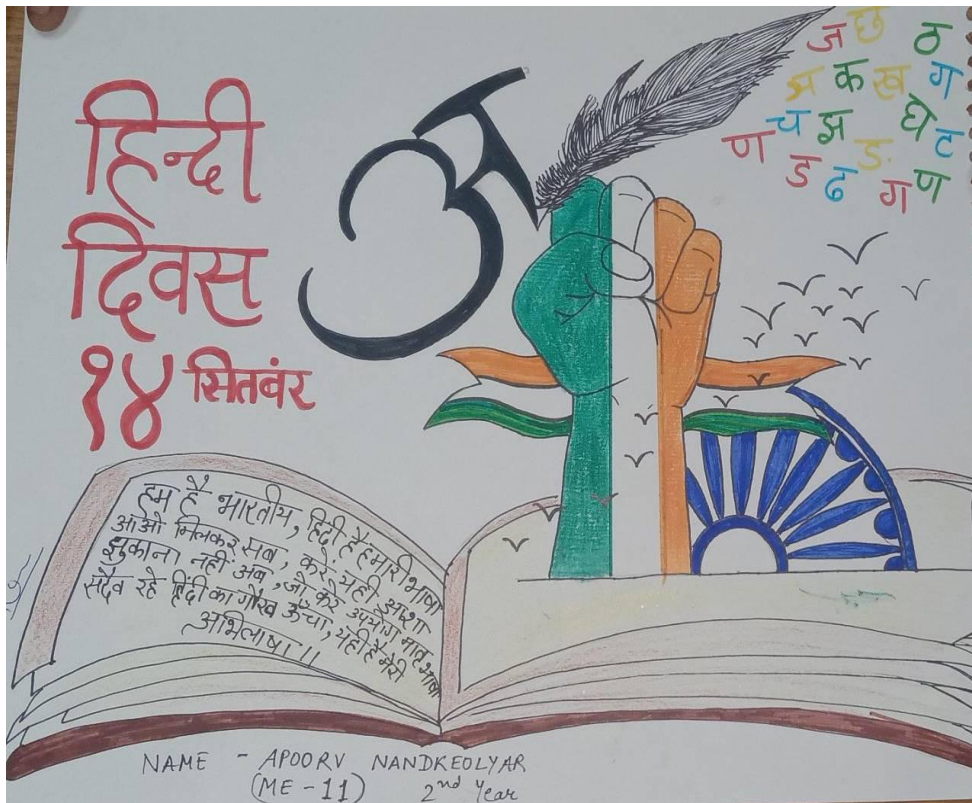 हिन्दी
दिवस
१४ सितबंर
अ
ज छ ठ
झ क ख ग
च झ ङ घ ट
ण ड ढ ग ण
हम है भारतीय, हिंदी है हमारी भाषा
आओ मिलकर सब, करे यही आशा
झुकाना नहीं अब, जो करे उपयोग मातृभाषा
सदैव रहे हिंदी का गौरव ऊँचा, यही है मेरी
अभिलाषा ।।
NAME - APOORV NANDKEOLYAR
(ME - 11) 2nd Year